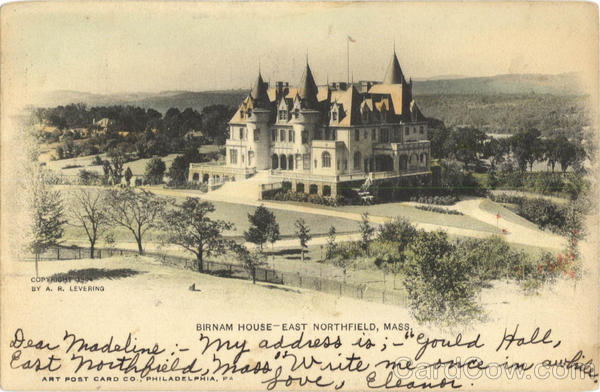 COPYRIGHT
BY A. R. LEVERING
BIRNAM HOUSE—EAST NORTHFIELD, MASS.
Dear Madeline:- My address is;- "Gould Hall,
East Northfield, Mass" Write me once in awhile
ART POST CARD CO., PHILADELPHIA, PA
Love, Eleanor.
CardCow.com